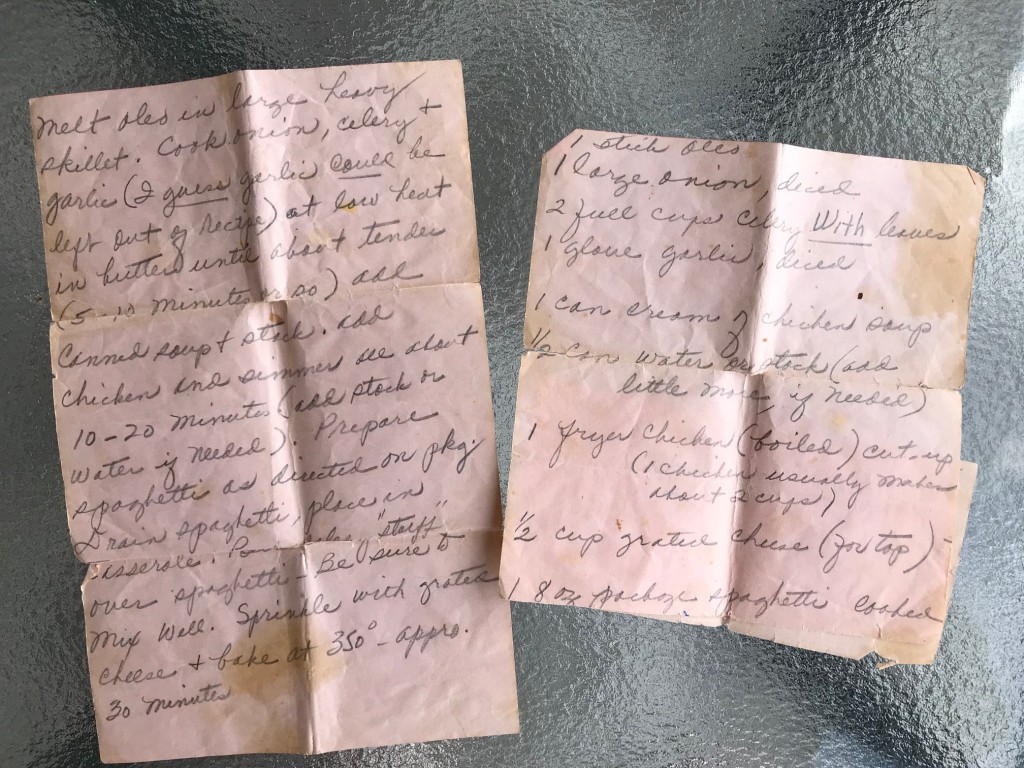 1 stick oleo
1 large onion, diced
2 full cups celery, diced With leaves
1 glove garlic
1 can cream of chicken soup
1/2 can water or stock (add
little more if needed)
1 fryer chicken (boiled) cut up
(1 chicken usually makes
about 2 cups)
1/2 cup grated cheese (for top)
1 8 oz package spaghetti cooked
Melt oleo in large heavy
skillet. Cook onion, celery +
garlic (I guess garlic could be
left out of recipe) at low heat
in butter until clear + tender
(5 - 10 minutes or so) add
canned soup + stock, add
chicken and simmer all about
10-20 minutes (add stock or
water if needed) Prepare
spaghetti as directed on pkg
Drain spaghetti, place in
casserole, Pour " stuff "
over spaghetti - Be sure to
mix well. Sprinkle with grated
cheese + bake at 350° - appro.
30 minutes